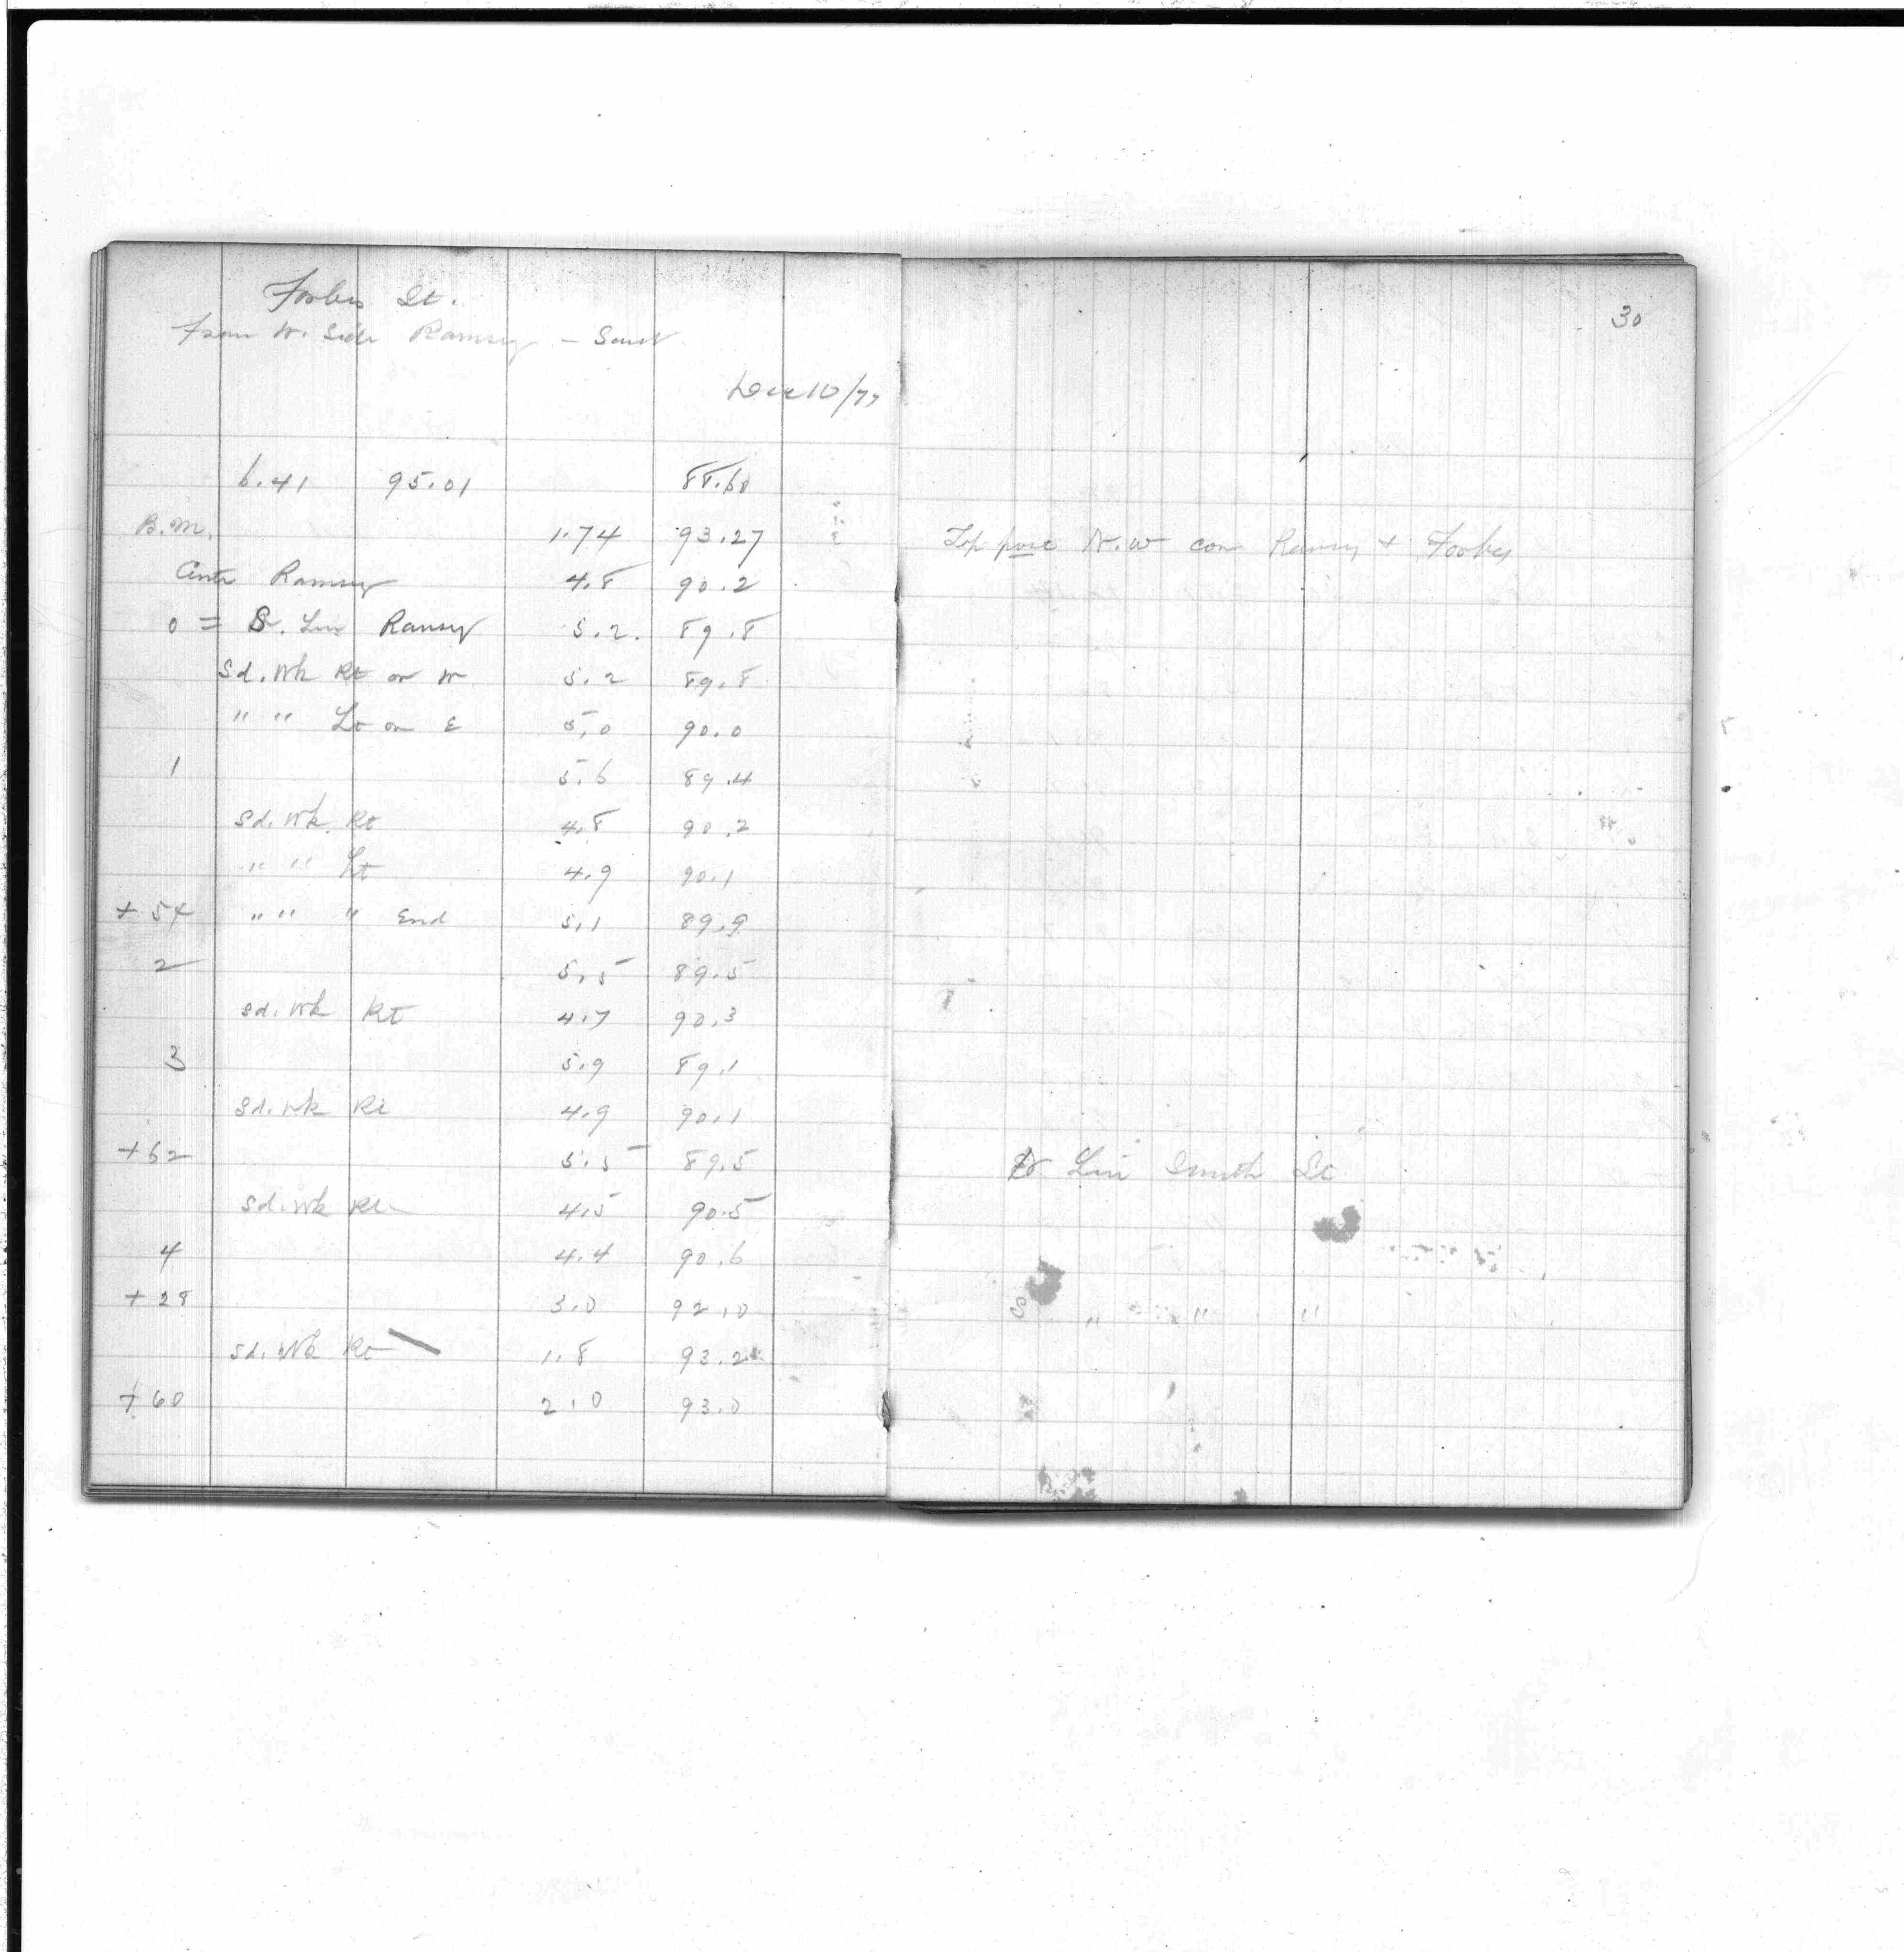 Forbes St.
From W. Side Ramsey - South
Dec 10/77
6.41 95.01 88.60
B.M. 1.74 93.27
Centr Ramsey 4.8 90.2
0 = S. Lin Ramsey 5.2. 89.8
Sd. Wk Rt or W 5.2 89.8
" " Lt or E 5.0 90.0
1 5.6 89.4
Sd. Wk. Rt 4.8 90.2
" " Lt 4.9 90.1
+ 54 " " " End 5.1 89.9
2 5.5 89.5
Sd. Wk Rt 4.7 90.3
3 5.9 89.1
Sd. Wk Rt 4.9 90.1
+ 62 5.5 89.5
Sd. Wk Rt 4.5 90.5
4 4.4 90.6
+ 28 3.0 92.0
Sd. Wk Rt 1.8 93.2
+ 60 2.0 93.0
30
Top post N.W cor Ramsey + Forbes
N Lin Smith St
S " " "